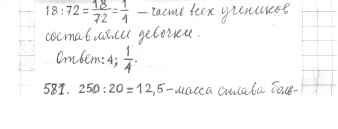 18 : 72 = 18/72 = 1/4 – часть всех учеников
составляли девочки.
Ответ: 4; 1/4.
581. 250 : 20 = 12,5 – масса сплава боль-